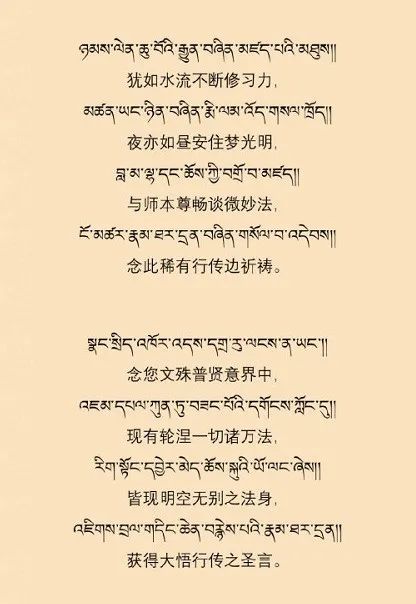 ཉམས་ལེན་ཆུ་བོའི་རྒྱུན་བཞིན་མཛད་པའི་མཐུས།།
犹如水流不断修习力,
མཚན་ཡང་ཉིན་བཞིན་རྨི་ལམ་འོད་གསལ་ཁྲོད།།
夜亦如昼安住梦光明,
བླ་མ་ལྷ་དང་ཆོས་ཀྱི་བགྲོ་བ་མཛད།།
与师本尊畅谈微妙法,
ངོ་མཚར་རྣམ་ཐར་དྲན་བཞིན་གསོལ་བ་འདེབས།།
念此稀有行传边祈祷。
སྣང་སྲིད་འཁོར་འདས་དགྲ་རུ་ལངས་ན་ཡང་།།
念您文殊普贤意界中,
འཇམ་དཔལ་ཀུན་ཏུ་བཟང་པོའི་དགོངས་ཀློང་དུ།།
现有轮涅一切诸万法,
རིག་སྟོང་དབྱེར་མེད་ཆོས་སྐུའི་ཡོ་ལང་ཞེས།།
皆现明空无别之法身,
འཇིགས་བྲལ་གདིང་ཆེན་བརྙེས་པའི་རྣམ་ཐར་དྲན།།
获得大悟行传之圣言。